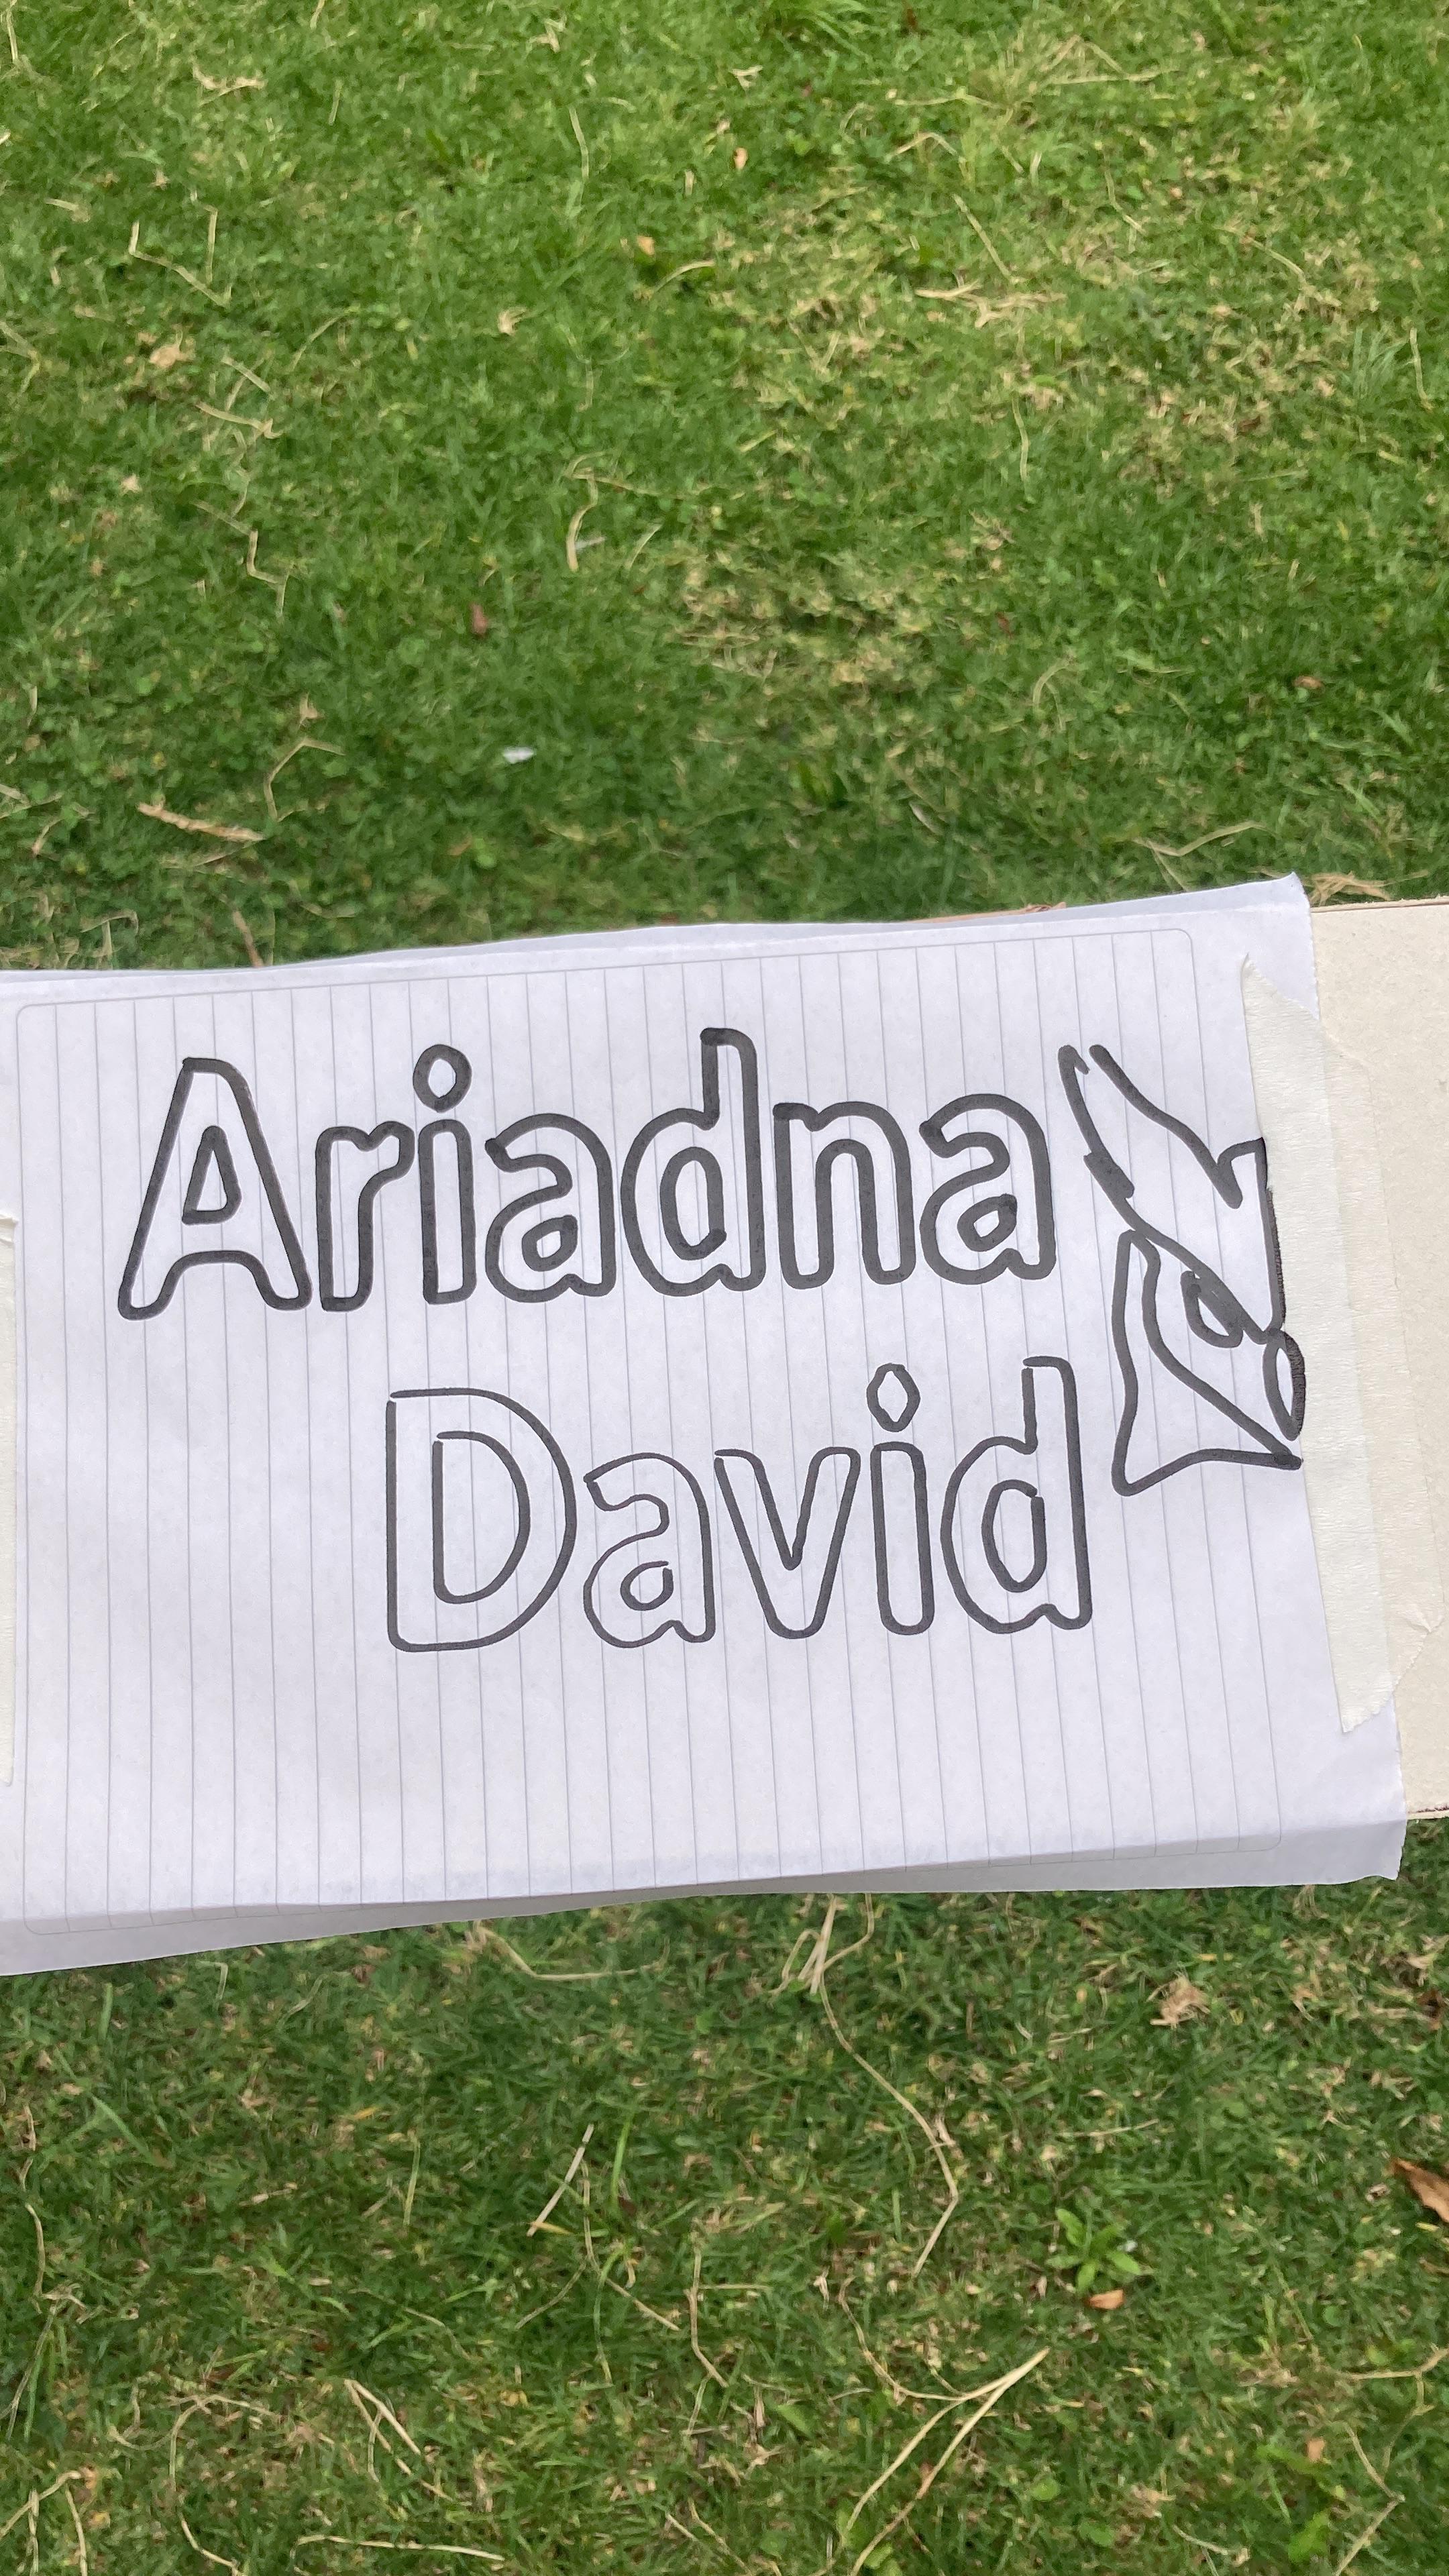 Ariadna
David